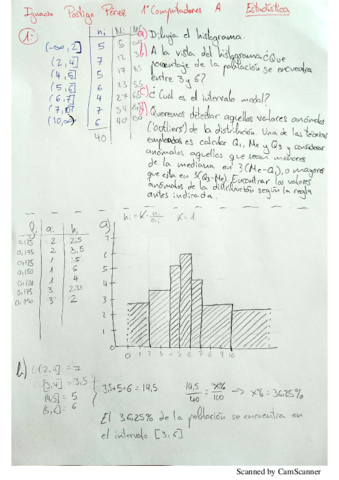 Ignacio Postigo Pérez 1º Computadores A Estadística
1:
ni Ni
(-∞, 2] 5 5
(2, 4] 7 12
(4, 5] 5 17
(5, 6] 6 23
(6, 7] 4 27
(7, 10] 7 34
(10, ∞) 6 40
40
a) Dibuja el histograma.
b) A la vista del histograma ¿Que
porcentaje de la población se encuentra
entre 3 y 6?
c) ¿Cual es el intervalo modal?
d) Queremos detectar aquellos valores anómalos
('outliers') de la distribución. Una de las técnicas
empleadas es calcular Q1, Me y Q3 y considerar
anómalos aquellos que sean menores
de la mediana en 3(Me-Q1), o mayores
que esta en 3(Q3-Me). Encontrar los valores
anómalos de la distribución según la regla
antes indicada.
fi ai hi
0,125 2 2,5
0,175 2 3,5
0,125 1 5
0,150 1 6
0,100 1 4
0,175 3 2,33
0,150 3 2
a)
K=1
7
6
5
4
3
2
1
0 1 2 3 4 5 6 7 8 9 10
b)
(2,4] = 7
[3,4] = 3,5
[4,5] = 5
(5,6] = 6
3,5+5+6 = 14,5
14,5/40 = x%/100 → x% = 36,25%
El 36,25% de la población se encuentra en
el intervalo [3,6]
Scanned by CamScanner